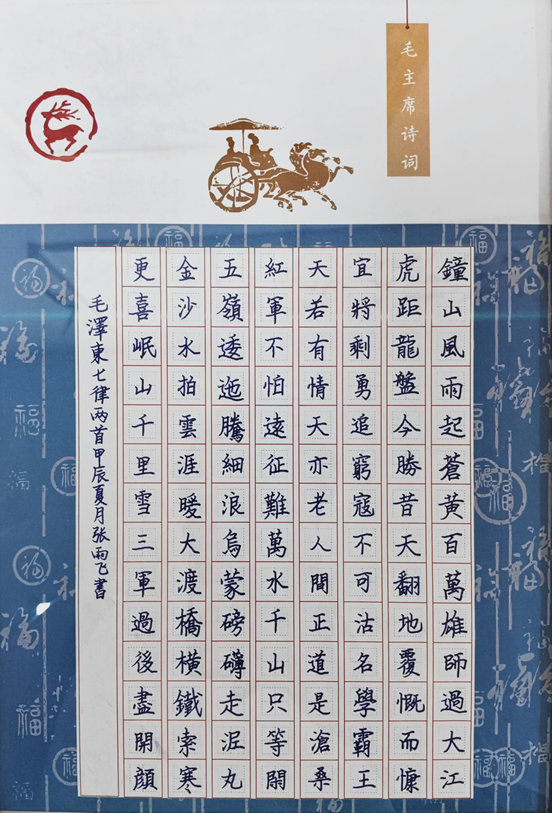 毛主席诗词
鐘山風雨起蒼黃百萬雄師過大江
虎距龍盤今勝昔天翻地覆慨而慷
宜將剩勇追窮寇不可沽名學霸王
天若有情天亦老人間正道是滄桑
紅軍不怕遠征難萬水千山只等閒
五嶺逶迤騰細浪烏蒙磅礴走泥丸
金沙水拍雲涯暖大渡橋橫鐵索寒
更喜岷山千里雪三軍過後盡開顔
毛澤東七律两首甲辰夏月张雨飞書